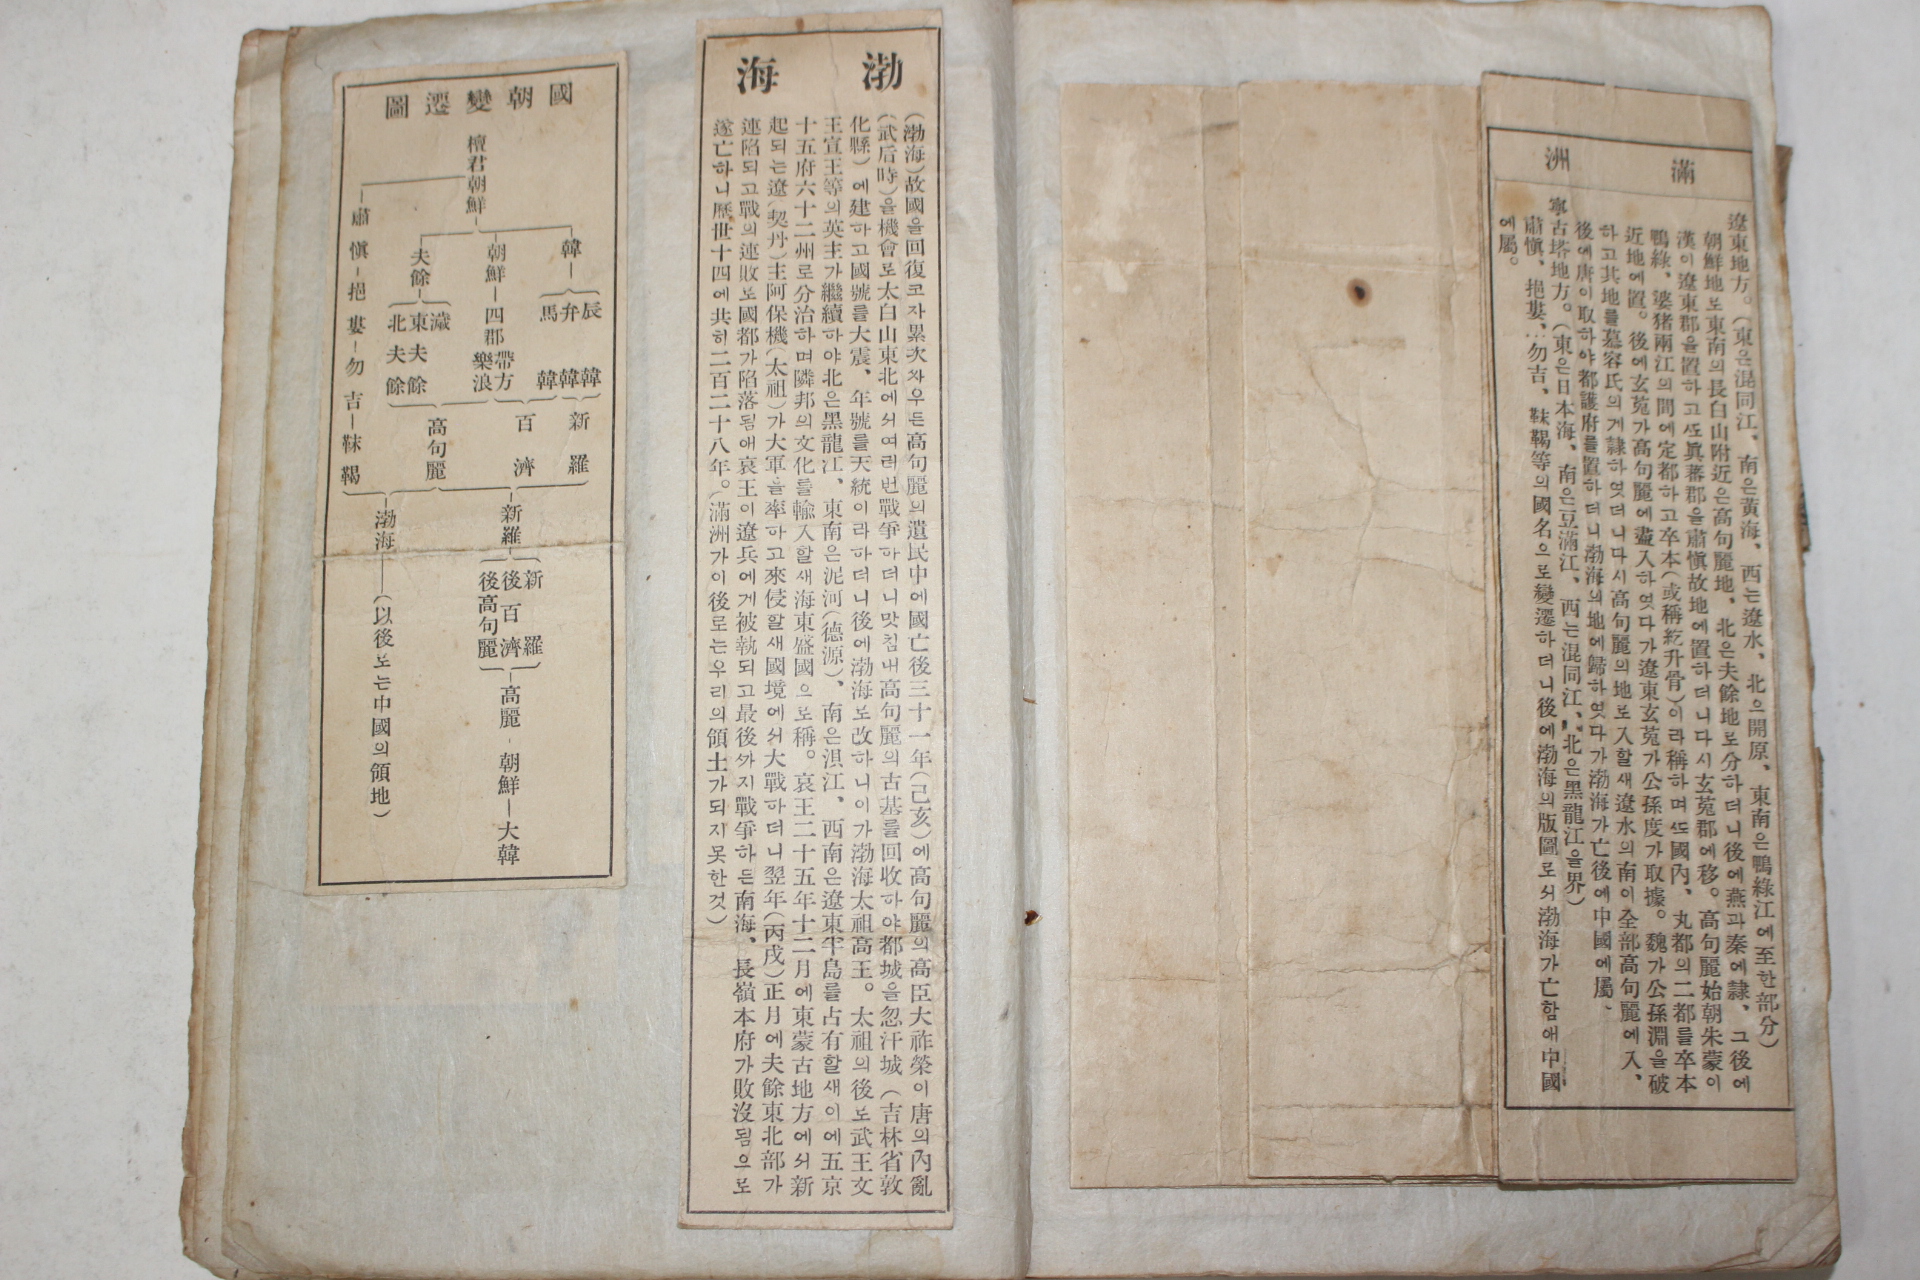 滿洲
遼東地方。(東은混同江、南은黃海、西는遼水、北으開原、東南은鴨綠江에至한部分)
朝鮮地로東南의長白山附近은高句麗地、北은夫餘地로分하더니後에燕과秦에隷、그後에
漢이遼東郡을置하고ᄯᅩ眞蕃郡을肅愼故地에置하더니다시玄菟郡에移。高句麗始朝朱蒙이
鴨綠、婆猪兩江의間에定都하고卒本(或稱紇升骨)이라稱하며ᄯᅩ國內、丸都의二都를卒本
近地에置。後에玄菟가高句麗에盡入하엿다가遼東玄菟가公孫度가取據。魏가公孫淵을破
하고其地를慕容氏의게隷하엿더니다시高句麗의地로入할새遼水의南이全部高句麗에入、
後에唐이取하야都護府를置하더니渤海의地에歸하엿다가渤海가亡後에中國에屬、
寧古塔地方。(東은日本海、南은豆滿江、西는混同江、北은黑龍江을界)
肅愼、挹婁、勿吉、靺鞨等의國名으로變遷하더니後에渤海의版圖로서渤海가亡함애中國
에屬。
渤海
(渤海)故國을回復코자累次싸우든高句麗의遺民中에國亡後三十一年(己亥)에高句麗의高臣大祚榮이唐의內亂
(武后時)을機會로太白山東北에서여러번戰爭하더니맛침내高句麗의古基를回收하야都城을忽汗城(吉林省敦
化縣)에建하고國號를大震、年號를天統이라하더니後에渤海로改하니이가渤海太祖高王。太祖의後로武王文
王宣王等의英主가繼續하야北은黑龍江、東南은泥河(德源)、南은浿江、西南은遼東半島를占有할새이에五京
十五府六十二州로分治하며隣邦의文化를輸入할새海東盛國으로稱。哀王二十五年十二月에東蒙古地方에서新
起되는遼(契丹)主阿保機(太祖)가大軍을率하고來侵할새國境에서大戰하더니翌年(丙戌)正月에夫餘東北部가
連陷되고戰의連敗로國都가陷落됨애哀王이遼兵에게被執되고最後ᄭᅡ지戰爭하든南海、長嶺本府가敗沒됨으로
遂亡하니歷世十四에共히二百二十八年。(滿洲가이後로는우리의領土가되지못한것)
國朝變遷圖
檀君朝鮮
韓
辰韓
弁韓
馬韓
朝鮮—四郡
帶方
樂浪
夫餘
濊
東夫餘
北夫餘
肅愼—挹婁—勿吉—靺鞨
新羅
百濟
高句麗
新羅
渤海—(以後로는中國의領地)
新羅
後百濟
後高句麗
高麗—朝鮮—大韓